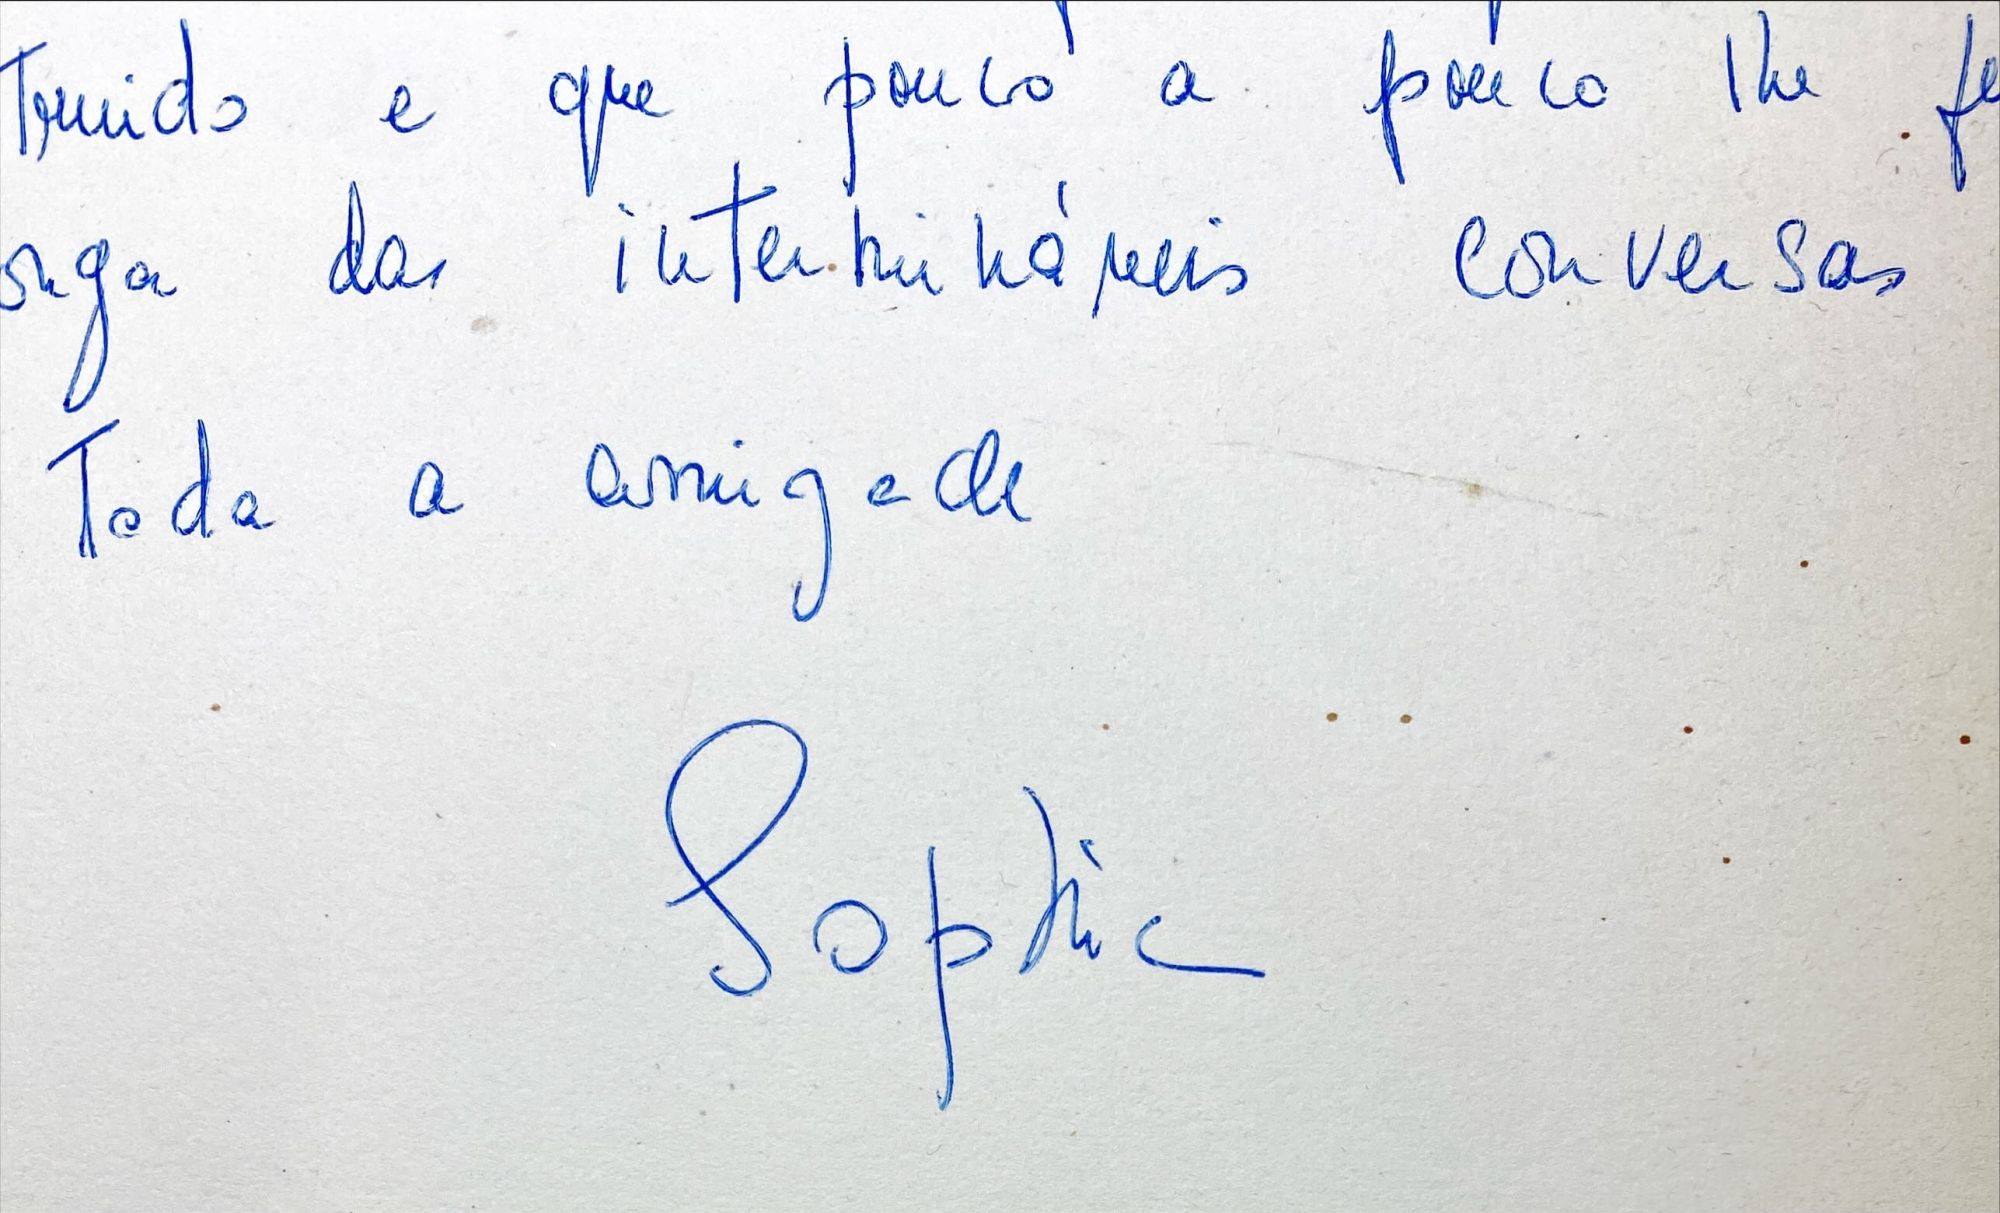 truido e que pouco a pouco lhe fu
onga das intermináveis conversas
Toda a amizade
Sophia